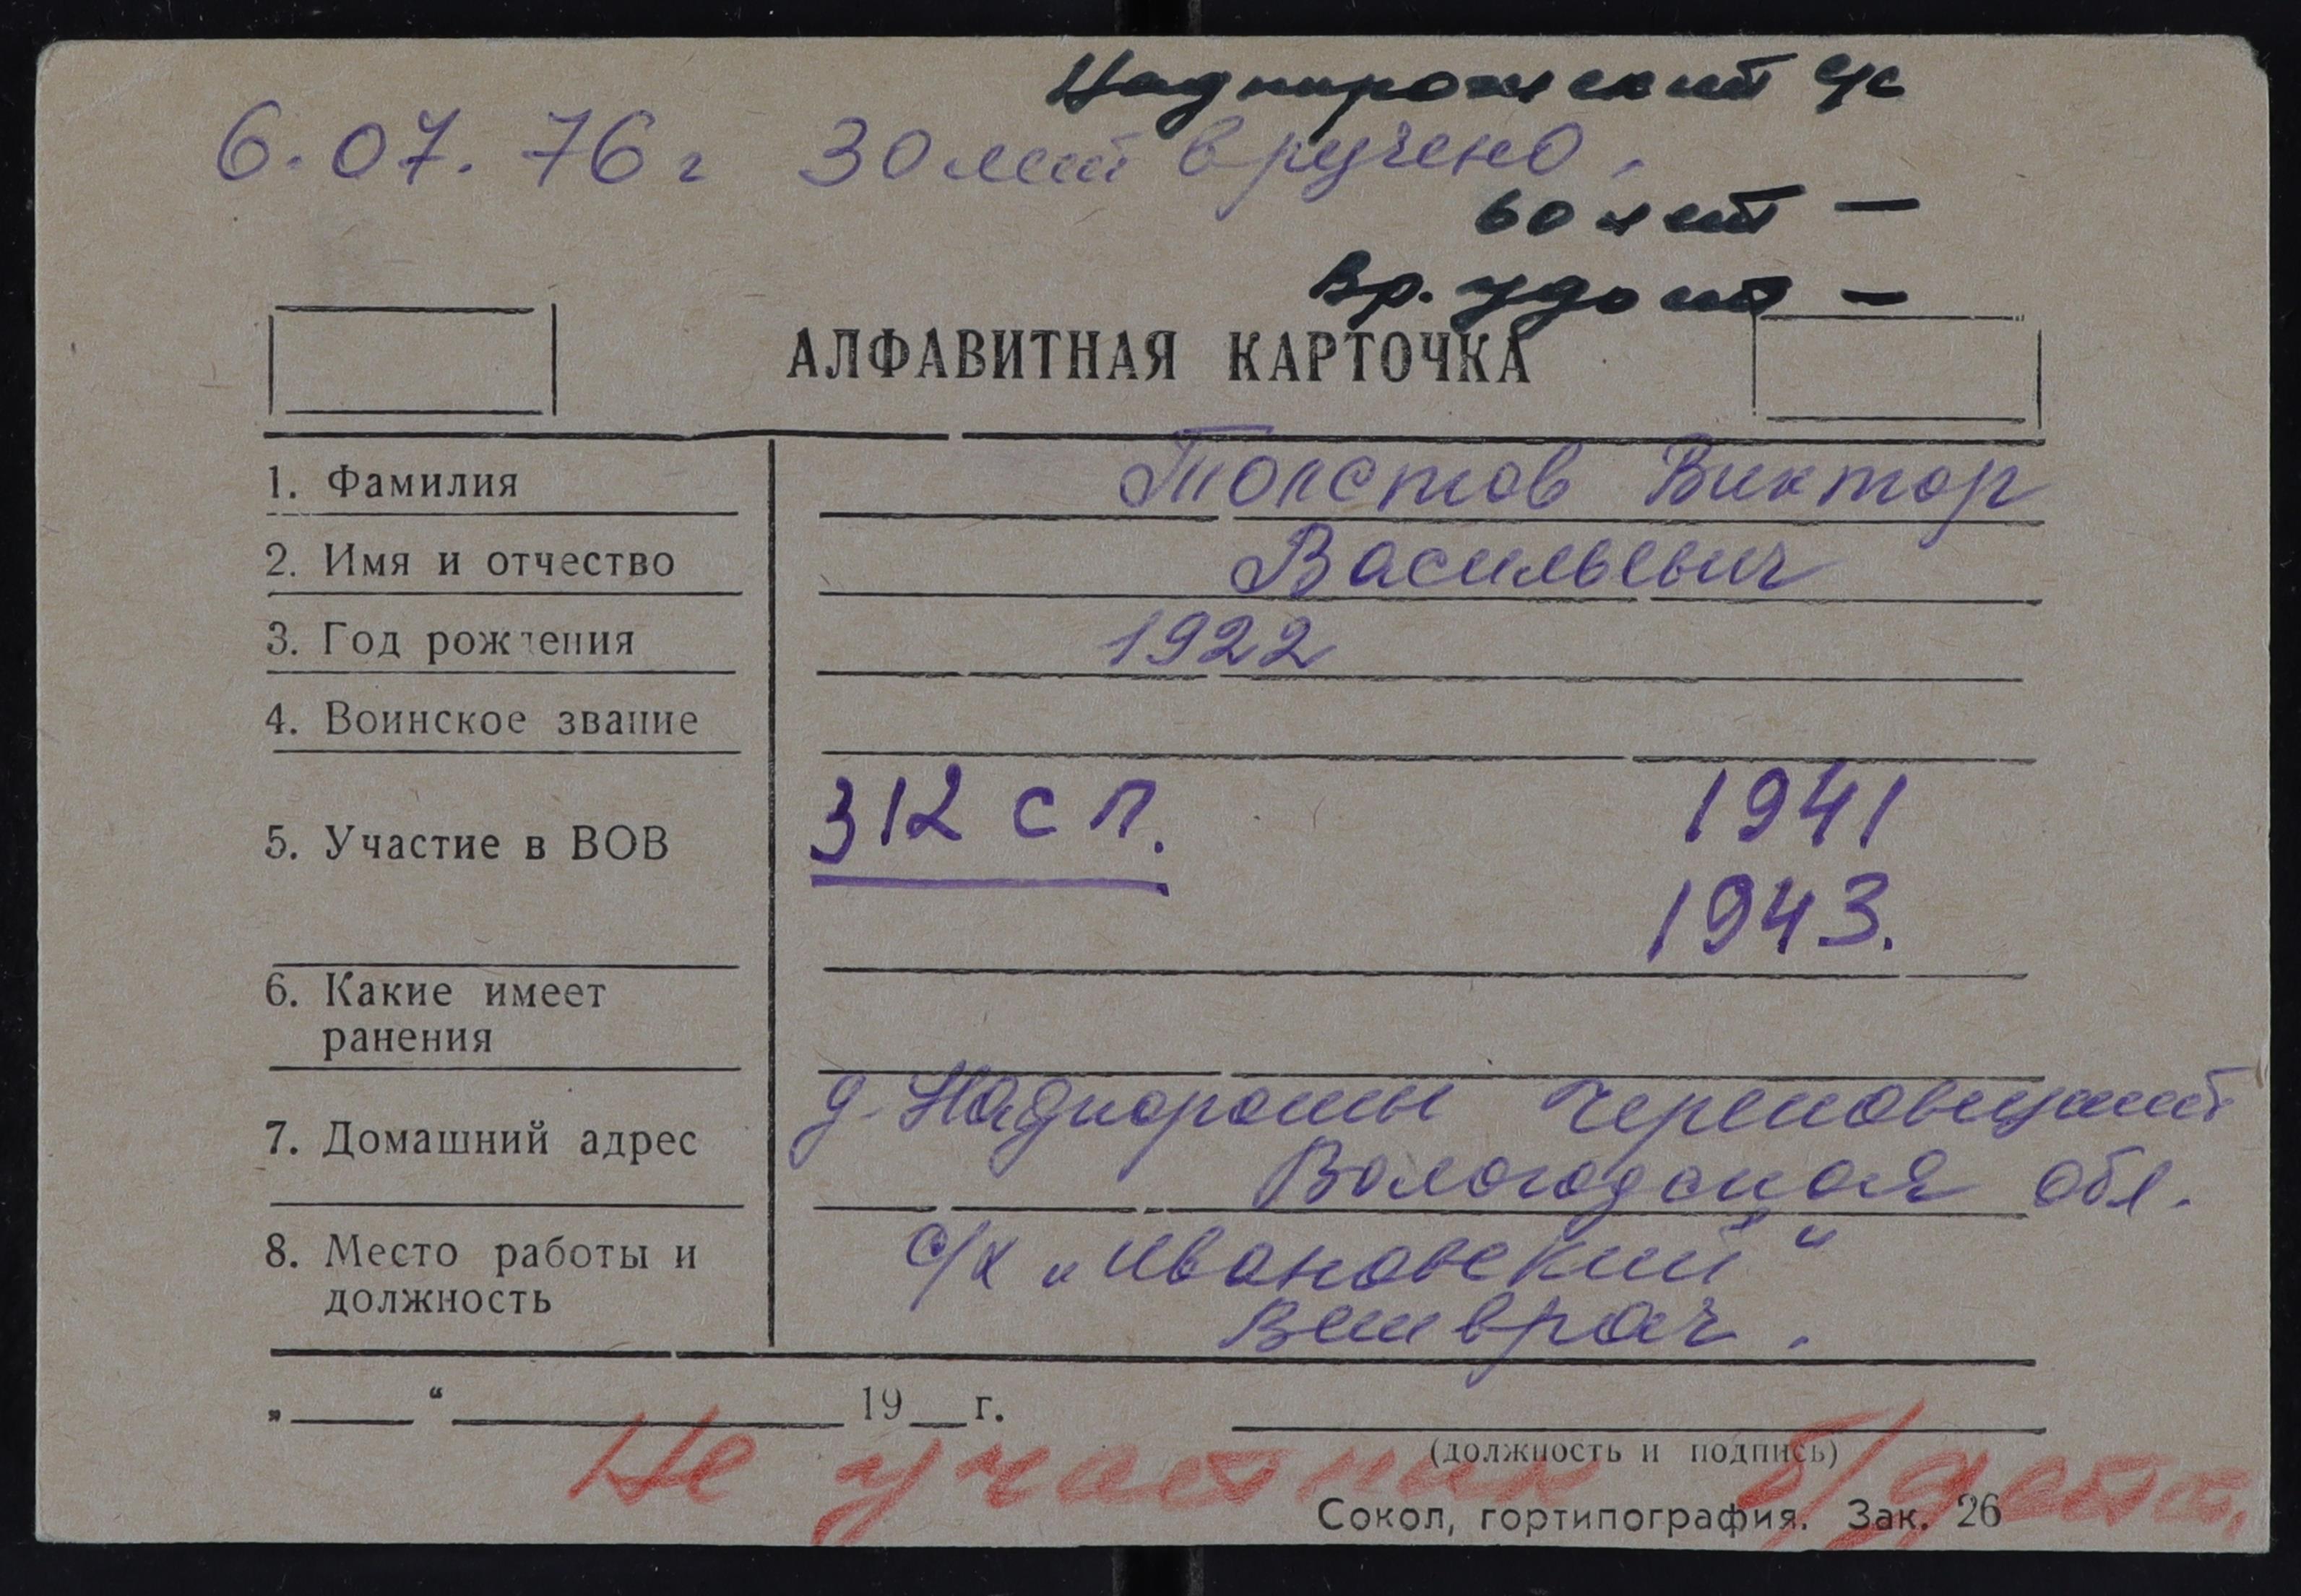 Надпорожский с/с
6.07.76 г 30 лет вручено.
60 лет —
Вр. удост —
АЛФАВИТНАЯ КАРТОЧКА
1. Фамилия Толстов Виктор
2. Имя и отчество Васильевич
3. Год рождения 1922
4. Воинское звание
312 с п. 1941
5. Участие в ВОВ
1943.
6. Какие имеет
ранения
д. Надпорожье Череповецкий
7. Домашний адрес
Вологодская обл.
8. Место работы и с/х „Ивановский“
должность Ветврач.
„ “ 19 г.
(должность и подпись)
Не участник б/действ.
Сокол, гортипография. Зак. 26